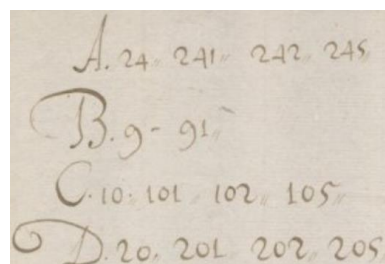 A. 24 „ 241 „ 242 „ 245 „
B. 9 - 91 „
C. 10 „ 101 „ 102 „ 105 „
D. 20 „ 201 „ 202 „ 205 „